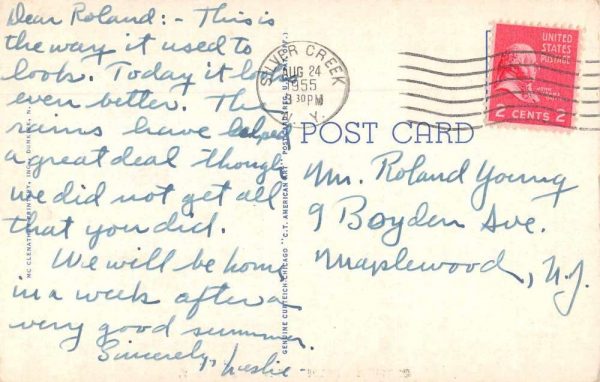 Dear Roland: - This is
the way it used to
look. Today it looks
even better. The
rains have helped
a great deal though
we did not get all
that you did.
We will be home
in a week after a
very good summer.
Sincerely, Leslie -
SILVER CREEK
AUG 24
1955
30 PM
N. Y.
UNITED
STATES
POSTAGE
2 CENTS 2
POST CARD
Mr. Roland Young
9 Boyden Ave.
Maplewood, N.J.
GENUINE CURTEICH-CHICAGO "C.T. AMERICAN ART" POST CARD (REG. U.S. PAT. OFF.)
MC CLENATHAN PRINTERY, INC., DUNKIRK, N.